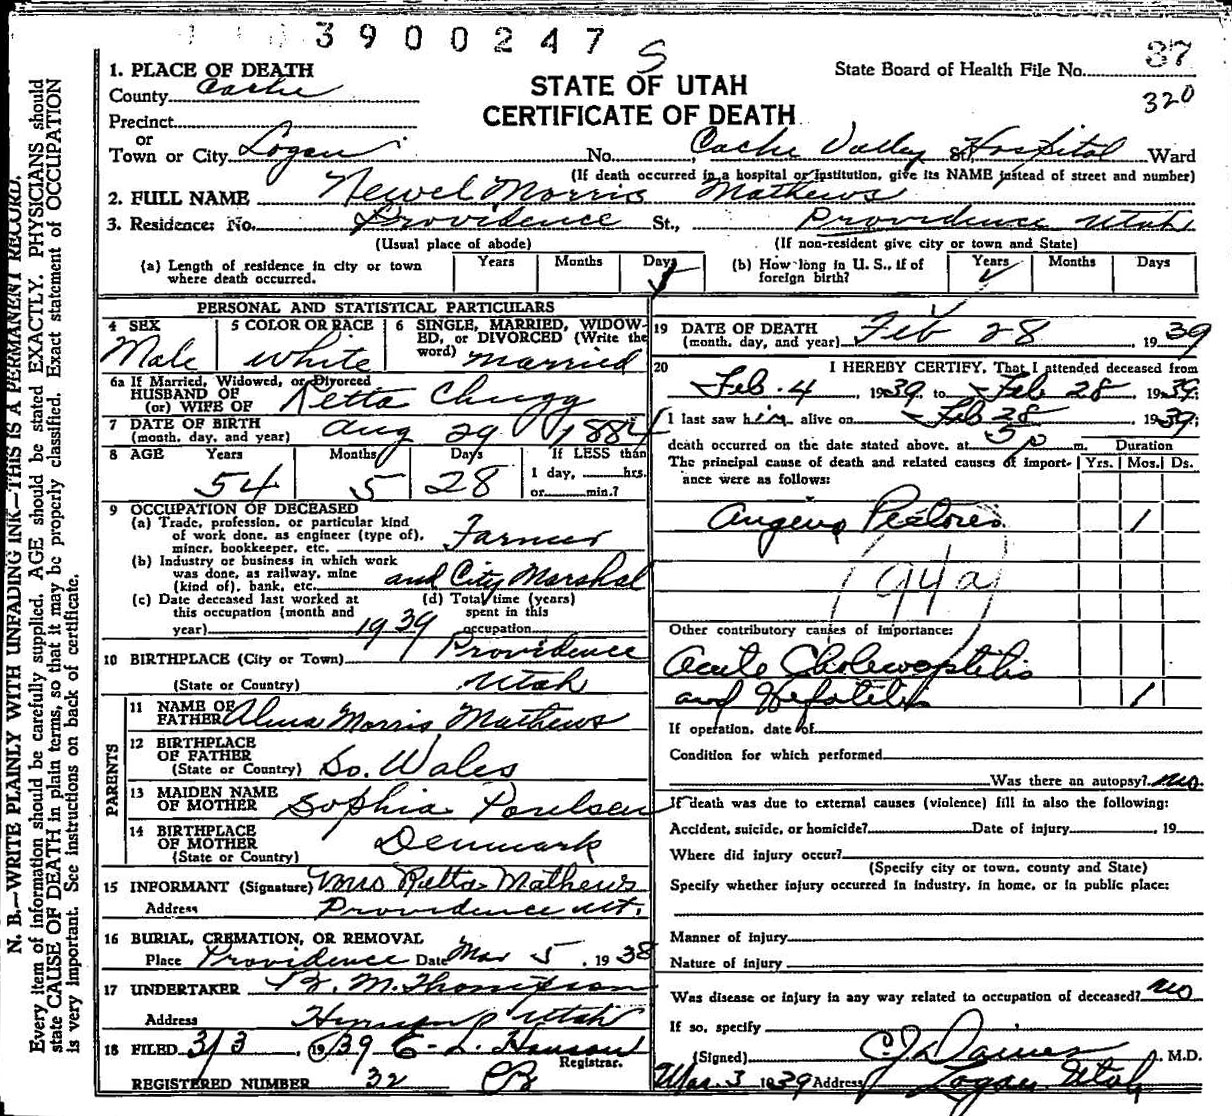 3900247
S
87
320
1. PLACE OF DEATH
State Board of Health File No.
STATE OF UTAH
CERTIFICATE OF DEATH
County Cache
Precinct
or
Town or City Logan No. Cache Valley St. Hospital Ward
(If death occurred in a hospital or institution, give its NAME instead of street and number)
2. FULL NAME Newel Morris Mathews
3. Residence: No. Providence St., Providence Utah
(Usual place of abode) (If non-resident give city or town and State)
(a) Length of residence in city or town where death occurred. Years Months Days
(b) How long in U. S., if of foreign birth? Years Months Days
PERSONAL AND STATISTICAL PARTICULARS
4 SEX Male
5 COLOR OR RACE white
6 SINGLE, MARRIED, WIDOWED, or DIVORCED (Write the word) married
6a If Married, Widowed, or Divorced
HUSBAND OF
(or) WIFE OF Retta Chugg
7 DATE OF BIRTH
(month, day, and year) Aug 29 1884
8 AGE Years Months Days If LESS than
54 5 28 1 day, hrs.
or min.?
9 OCCUPATION OF DECEASED
(a) Trade, profession, or particular kind
of work done, as engineer (type of),
miner, bookkeeper, etc. Farmer
(b) Industry or business in which work
was done, as railway, mine
(kind of), bank, etc. and City Marshal
(c) Date deceased last worked at
this occupation (month and
year) 1939
(d) Total time (years)
spent in this
occupation
10 BIRTHPLACE (City or Town) Providence
(State or Country) Utah
PARENTS
11 NAME OF
FATHER Alma Morris Mathews
12 BIRTHPLACE
OF FATHER
(State or Country) So. Wales
13 MAIDEN NAME
OF MOTHER Sophia Poulsen
14 BIRTHPLACE
OF MOTHER
(State or Country) Denmark
15 INFORMANT (Signature) Mrs Retta Mathews
Address Providence Ut.
16 BURIAL, CREMATION, OR REMOVAL
Place Providence Date Mar 5, 1938
17 UNDERTAKER B. M. Thompson
Address Hyrum Utah
18 FILED 3/3, 1939 E. L. Hanson
Registrar.
REGISTERED NUMBER 32
19 DATE OF DEATH
(month, day, and year) Feb 28 1939
20 I HEREBY CERTIFY, That I attended deceased from
Feb. 4, 1939, to Feb 28 1939;
I last saw him alive on Feb 28 1939;
death occurred on the date stated above, at 5 p m. Duration
The principal cause of death and related causes of importance were as follows: Yrs. Mos. Ds.
Angena Pectoris 1
94a
Other contributory causes of importance:
Acute
and Hepatitis 1
If operation, date of
Condition for which performed
Was there an autopsy? no
If death was due to external causes (violence) fill in also the following:
Accident, suicide, or homicide? Date of injury , 19
Where did injury occur?
(Specify city or town, county and State)
Specify whether injury occurred in industry, in home, or in public place:
Manner of injury
Nature of injury
Was disease or injury in any way related to occupation of deceased? no
If so, specify
(Signed) C J Daines, M.D.
Mar. 3 1939 Address Logan Utah
N. B.—WRITE PLAINLY WITH UNFADING INK—THIS IS A PERMANENT RECORD.
Every item of information should be carefully supplied. AGE should be stated EXACTLY. PHYSICIANS should
state CAUSE OF DEATH in plain terms, so that it may be properly classified. Exact statement of OCCUPATION
is very important. See instructions on back of certificate.